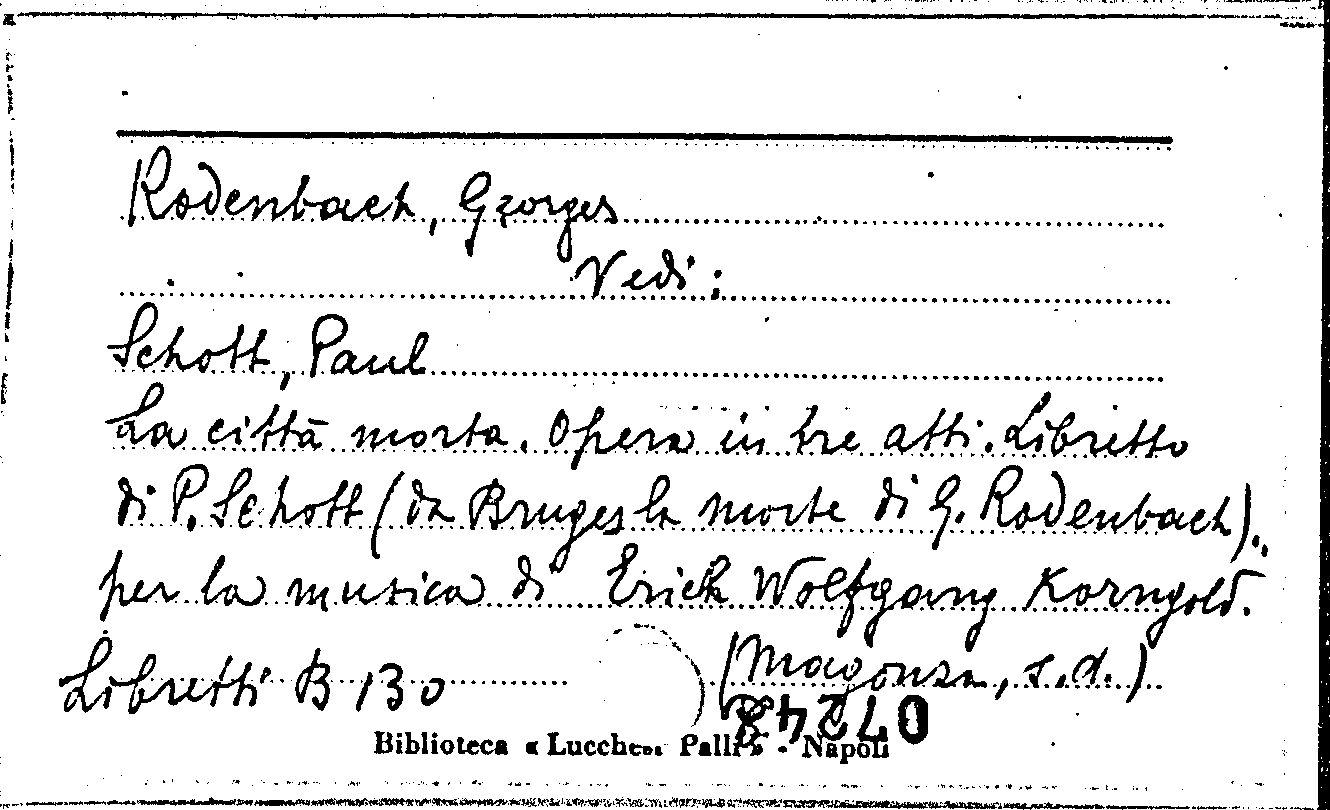 Rodenbach, Georges
Vedi:
Schott, Paul
La città morta. Opera in tre atti. Libretto
di P. Schott (da Bruges la morte di G. Rodenbach).
per la musica di Erich Wolfgang Korngold.
(Magonza, s.d.)
Libretti B 130
Biblioteca « Lucchesi Palli » - Napoli